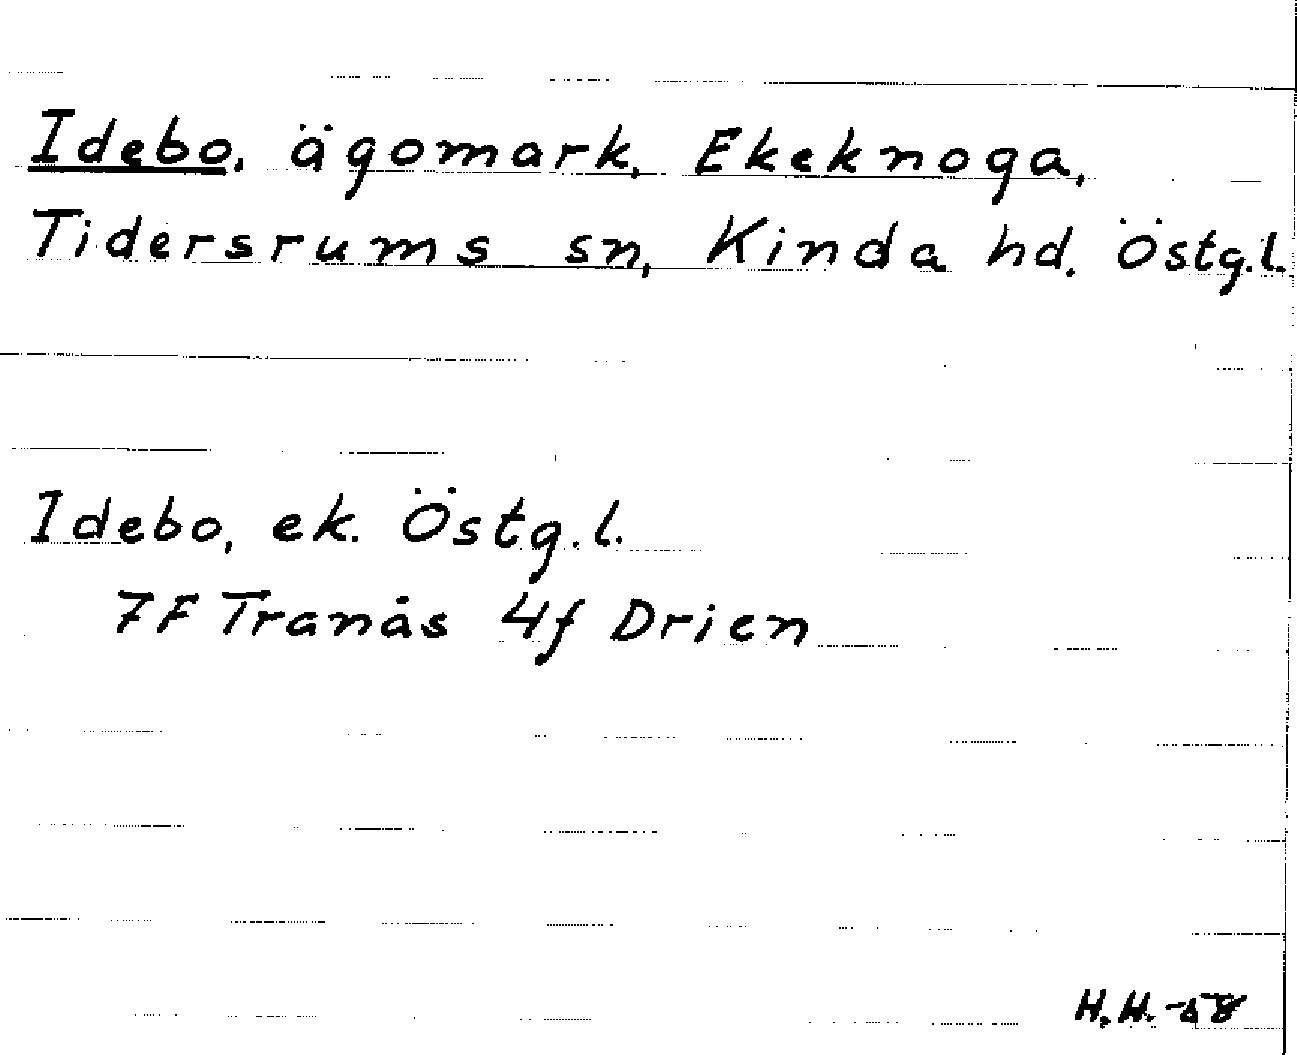 Idebo, ägomark, Ekeknoga,
Tidersrums sn, Kinda hd. Östg.l.
Idebo, ek. Östg.l.
7F Tranås 4f Drien
H.H.-58